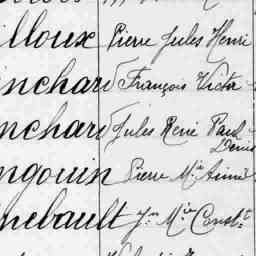 illoux Pierre Jules Henri
inchard François Victor
nchard Jules René Paul
Denis
ngouin Pierre Mie Aimé
hebault Jn Mie Const.t